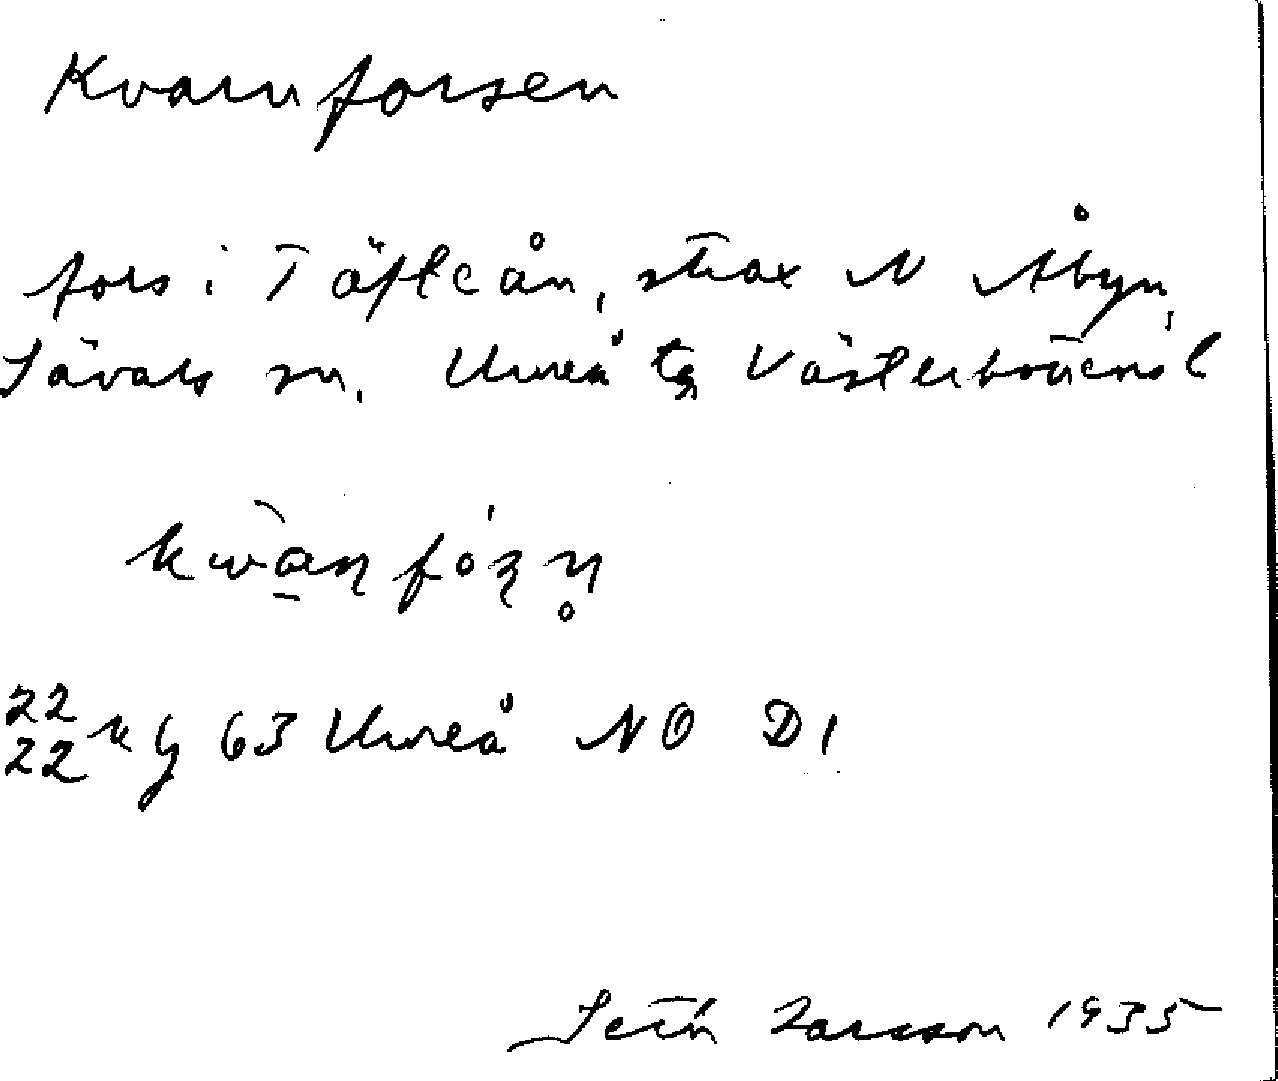 Kvarnforsen
fors i Täfteån, strax N Åbyn,
Sävars sn. Umeå tg Västerbottens l
kwa̱nfó
22 22 63 Umeå NO D1
Seth Larsson 1935